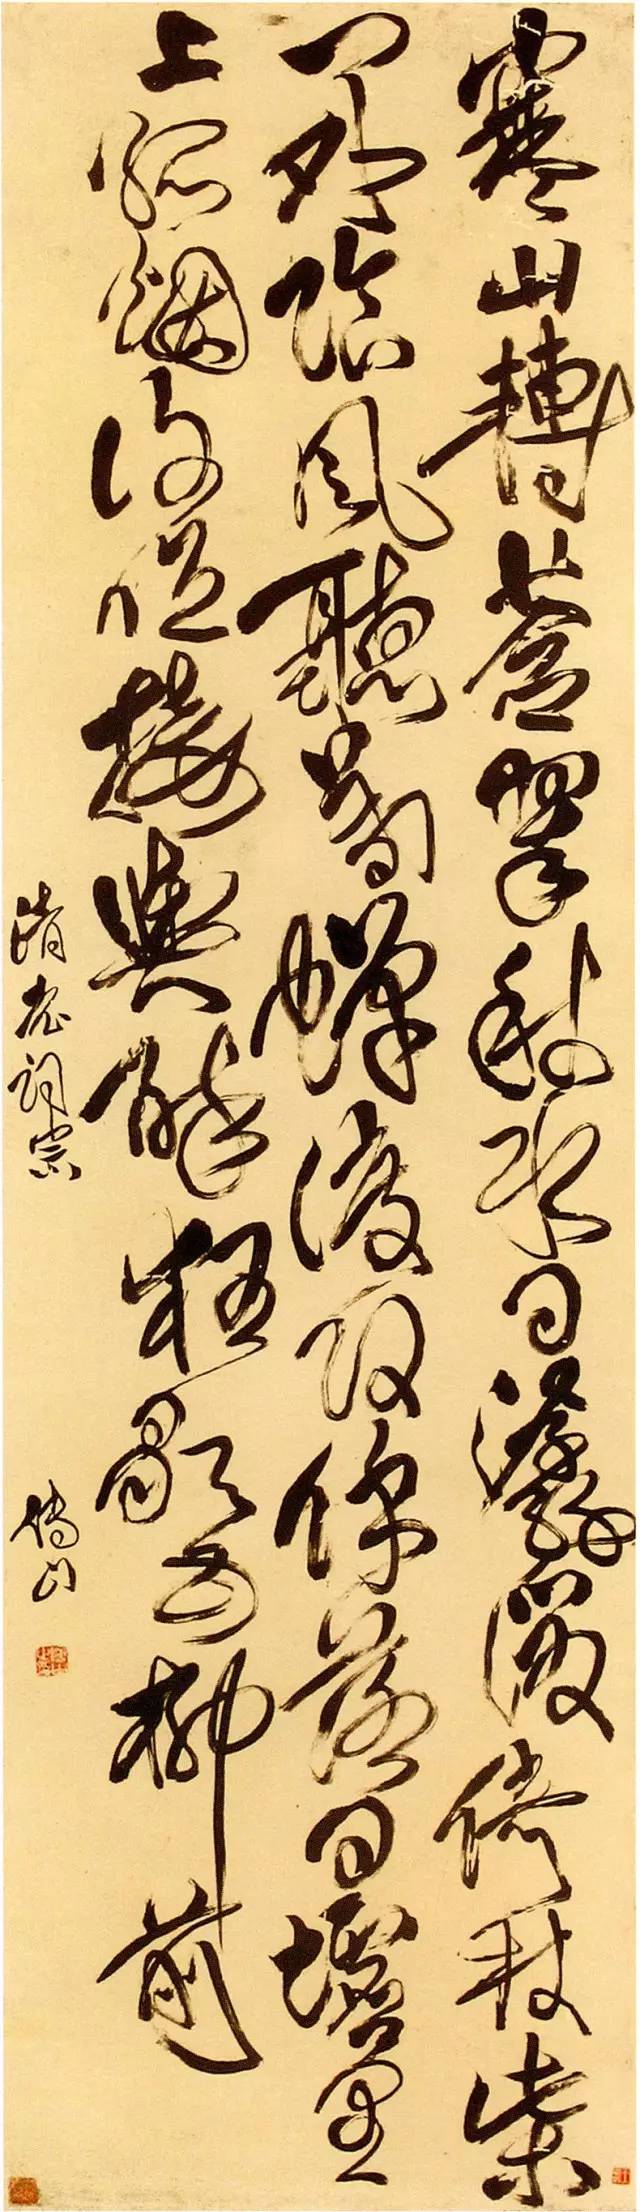 寒山轉蒼翠秋水日潺湲倚杖柴
門外臨風聽暮蟬渡頭餘落日墟里
上孤烟復值接輿醉狂歌五柳前
清老詞宗
傅山